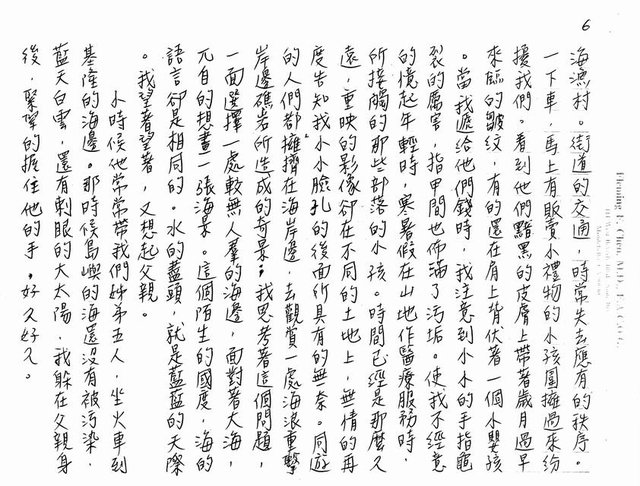 6
Fleming F. Chen, M.D., F.A.C.O.G.
海漁村。街道的交通，時常失去應有的秩序。
一下車，馬上有販賣小禮物的小孩圍擁過來紛
擾我們。看到他們黯黑的皮膚上帶著歲月過早
來臨的皺紋，有的還在肩上背伏著一個小嬰孩
。當我遞給他們錢時，我注意到小小的手指龜
裂的厲害，指甲間也佈滿了污垢。使我不經意
的憶起年輕時，寒暑假在山地作醫療服務時，
所接觸的那些部落的小孩。時間已經是那麼久
遠，重映的影像卻在不同的土地上，無情的再
度告知我小小臉孔的後面所具有的無奈。同遊
的人們都擁擠在海岸邊，去觀賞一處海浪重擊
岸邊礁岩所造成的奇景；我思考著這個問題，
一面選擇一處較無人羣的海邊，面對著大海，
兀自的想畫一張海景。這個陌生的國度，海的
語言卻是相同的。水的盡頭，就是藍藍的天際
。我望著望著，又想起父親。
小時候他常常帶我們姊弟五人，坐火車到
基隆的海邊。那時候島嶼的海還沒有被污染，
藍天白雲，還有刺眼的大太陽，我躲在父親身
後，緊緊的握住他的手，好久好久。